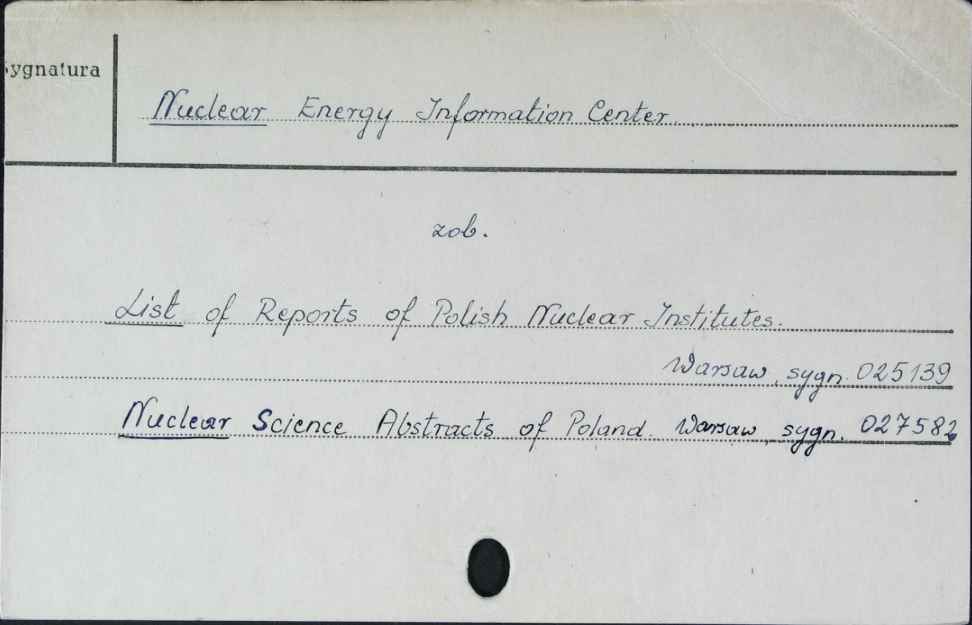 ygnatura
Nuclear Energy Information Center
zob.
List of Reports of Polish Nuclear Institutes.
Warsaw, sygn. 025139
Nuclear Science Abstracts of Poland. Warsaw, sygn. 027582